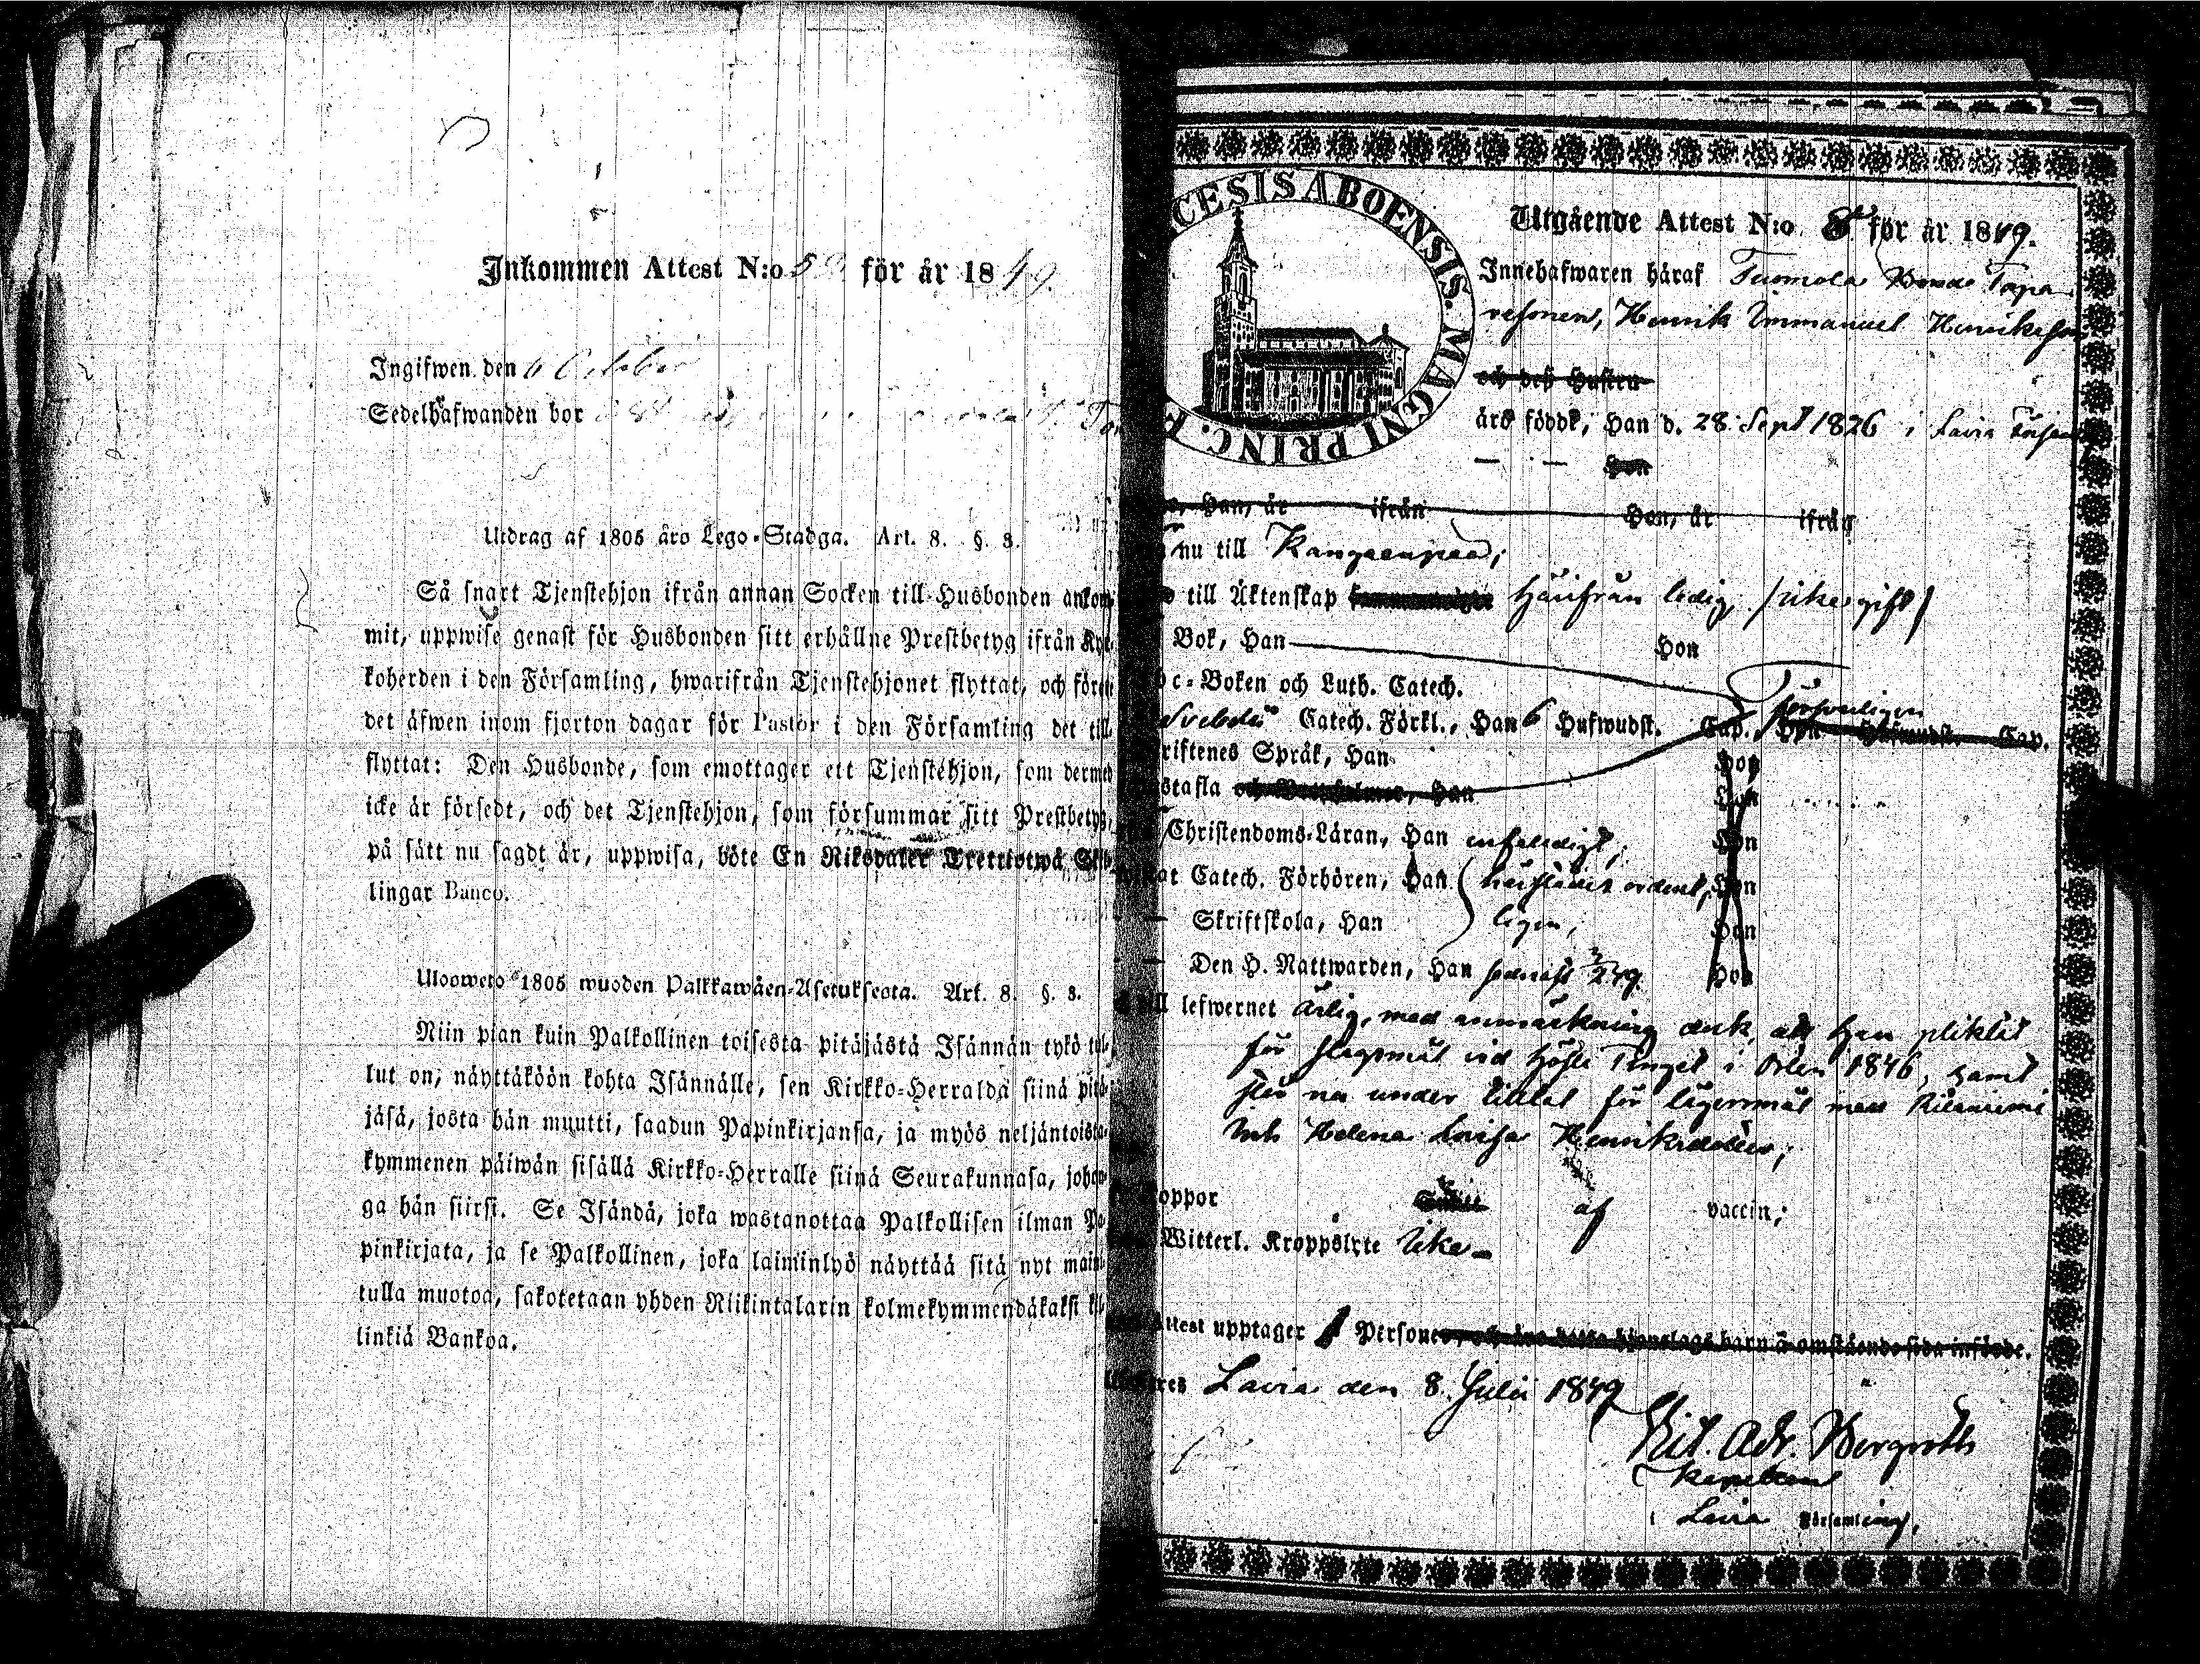 Inkommen Attest N:o 5 för år 1849.
Ingifwen den October
Sedelhafwanden bor
Utdrag af 1805 års Lego-Stadga. Art. 8. §. 8.
Så snart Tjenstehjon ifrån annan Socken till Husbonden ankom-
mit, uppwise genast för Husbonden sitt erhållne Prestbetyg ifrån Kyr-
koherden i den Församling, hwarifrån Tjenstehjonet flyttat, och före
det äfwen inom fjorton dagar för Pastor i den Församling det till
flyttat: Den Husbonde, som emottager ett Tjenstehjon, som dermed
icke är försedt, och det Tjenstehjon, som försummar sitt Prestbetyg,
på sätt nu sagdt är, uppwisa, böte En Riksdaler Trettiotwå Skil-
lingar Banco.
Ulosweto 1805 wuoden Palkkawäen-Asetuksesta. Art. 8. §. 8.
Niin pian kuin Palkollinen toisesta pitäjästä Isännän tykö tul-
lut on, näyttäköön kohta Isännälle, sen Kirkko-Herralda siinä pitä-
jäsä, josta hän muutti, saadun Papinkirjansa, ja myös neljäntoista-
kymmenen päiwän sisällä Kirkko-Herralle siinä Seurakunnasa, johon-
ga hän siirsi. Se Isändä, joka wastanottaa Palkollisen ilman Pa-
pinkirjata, ja se Palkollinen, joka laiminlyö näyttää sitä nyt maini-
tulla muotoa, sakotetaan yhden Riikintalarin kolmekymmendäkaksi kil-
linkiä Bankoa.
CESIS ABOENSIS. MAGNI PRINC. F
Utgående Attest N:o 8 för år 1849.
Innehafwaren häraf Tuomola Bonde Tapa
resonen, Henrik Emmanuel Henriksson
och des Hustru
äro född, Han d. 28 Sept 1826 i Lavia
Hon
Han, är ifrån Hon, är ifrån
nu till Kangasnpää;
till Äktenskap härifrån ledig, /icke gift/
Bok, Han Hon
c-Boken och Luth. Catech. Försvarligen
Svebelii Catech. Förkl., Han 6 Hufwudst. Cap., Hon Hufwudst. Cap.
riftenes Språk, Han Hon
stafla Han Hon
Christendoms-Läran, Han enfaldigt, Hon
at Catech. Förhören, Han härstädes ordent- Hon
Skriftskola, Han ligen, Hon
Den H. Nattwarden, Han senast Hon
lefwernet ärlig, med anmärkning dock, att han pliktat
för slagsmål vid Höste Tinget i Orten 1846, samt
står nu under tilltal för lägersmål med
Inh Helena Lovisa Henriksdotter;
oppor af vaccin;
Witterl. Kroppslyte Icke
Attest upptager 1 Persone, och äro detta hjonelags barn å omstående sida införde.
Lavia den 8 Julii 1849
Vit. Adr. Bergroth
Kapellan
i Lavia Församling.